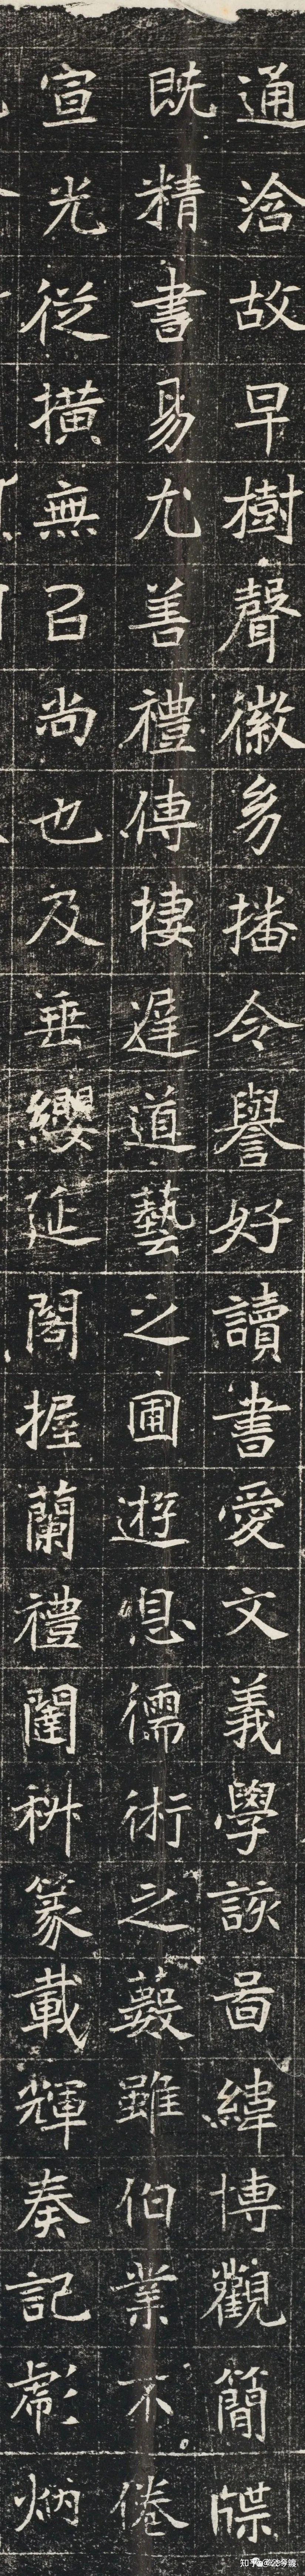 通洽故早樹聲徽夙播令譽好讀書愛文義學該啚緯博觀簡牒
既精書易尤善禮傳棲遲道藝之圃遊息儒術之藪雖伯業不倦
宣光從橫無㠯尚也及垂纓延閣握蘭禮闈篆載輝奏記彪炳
知乎